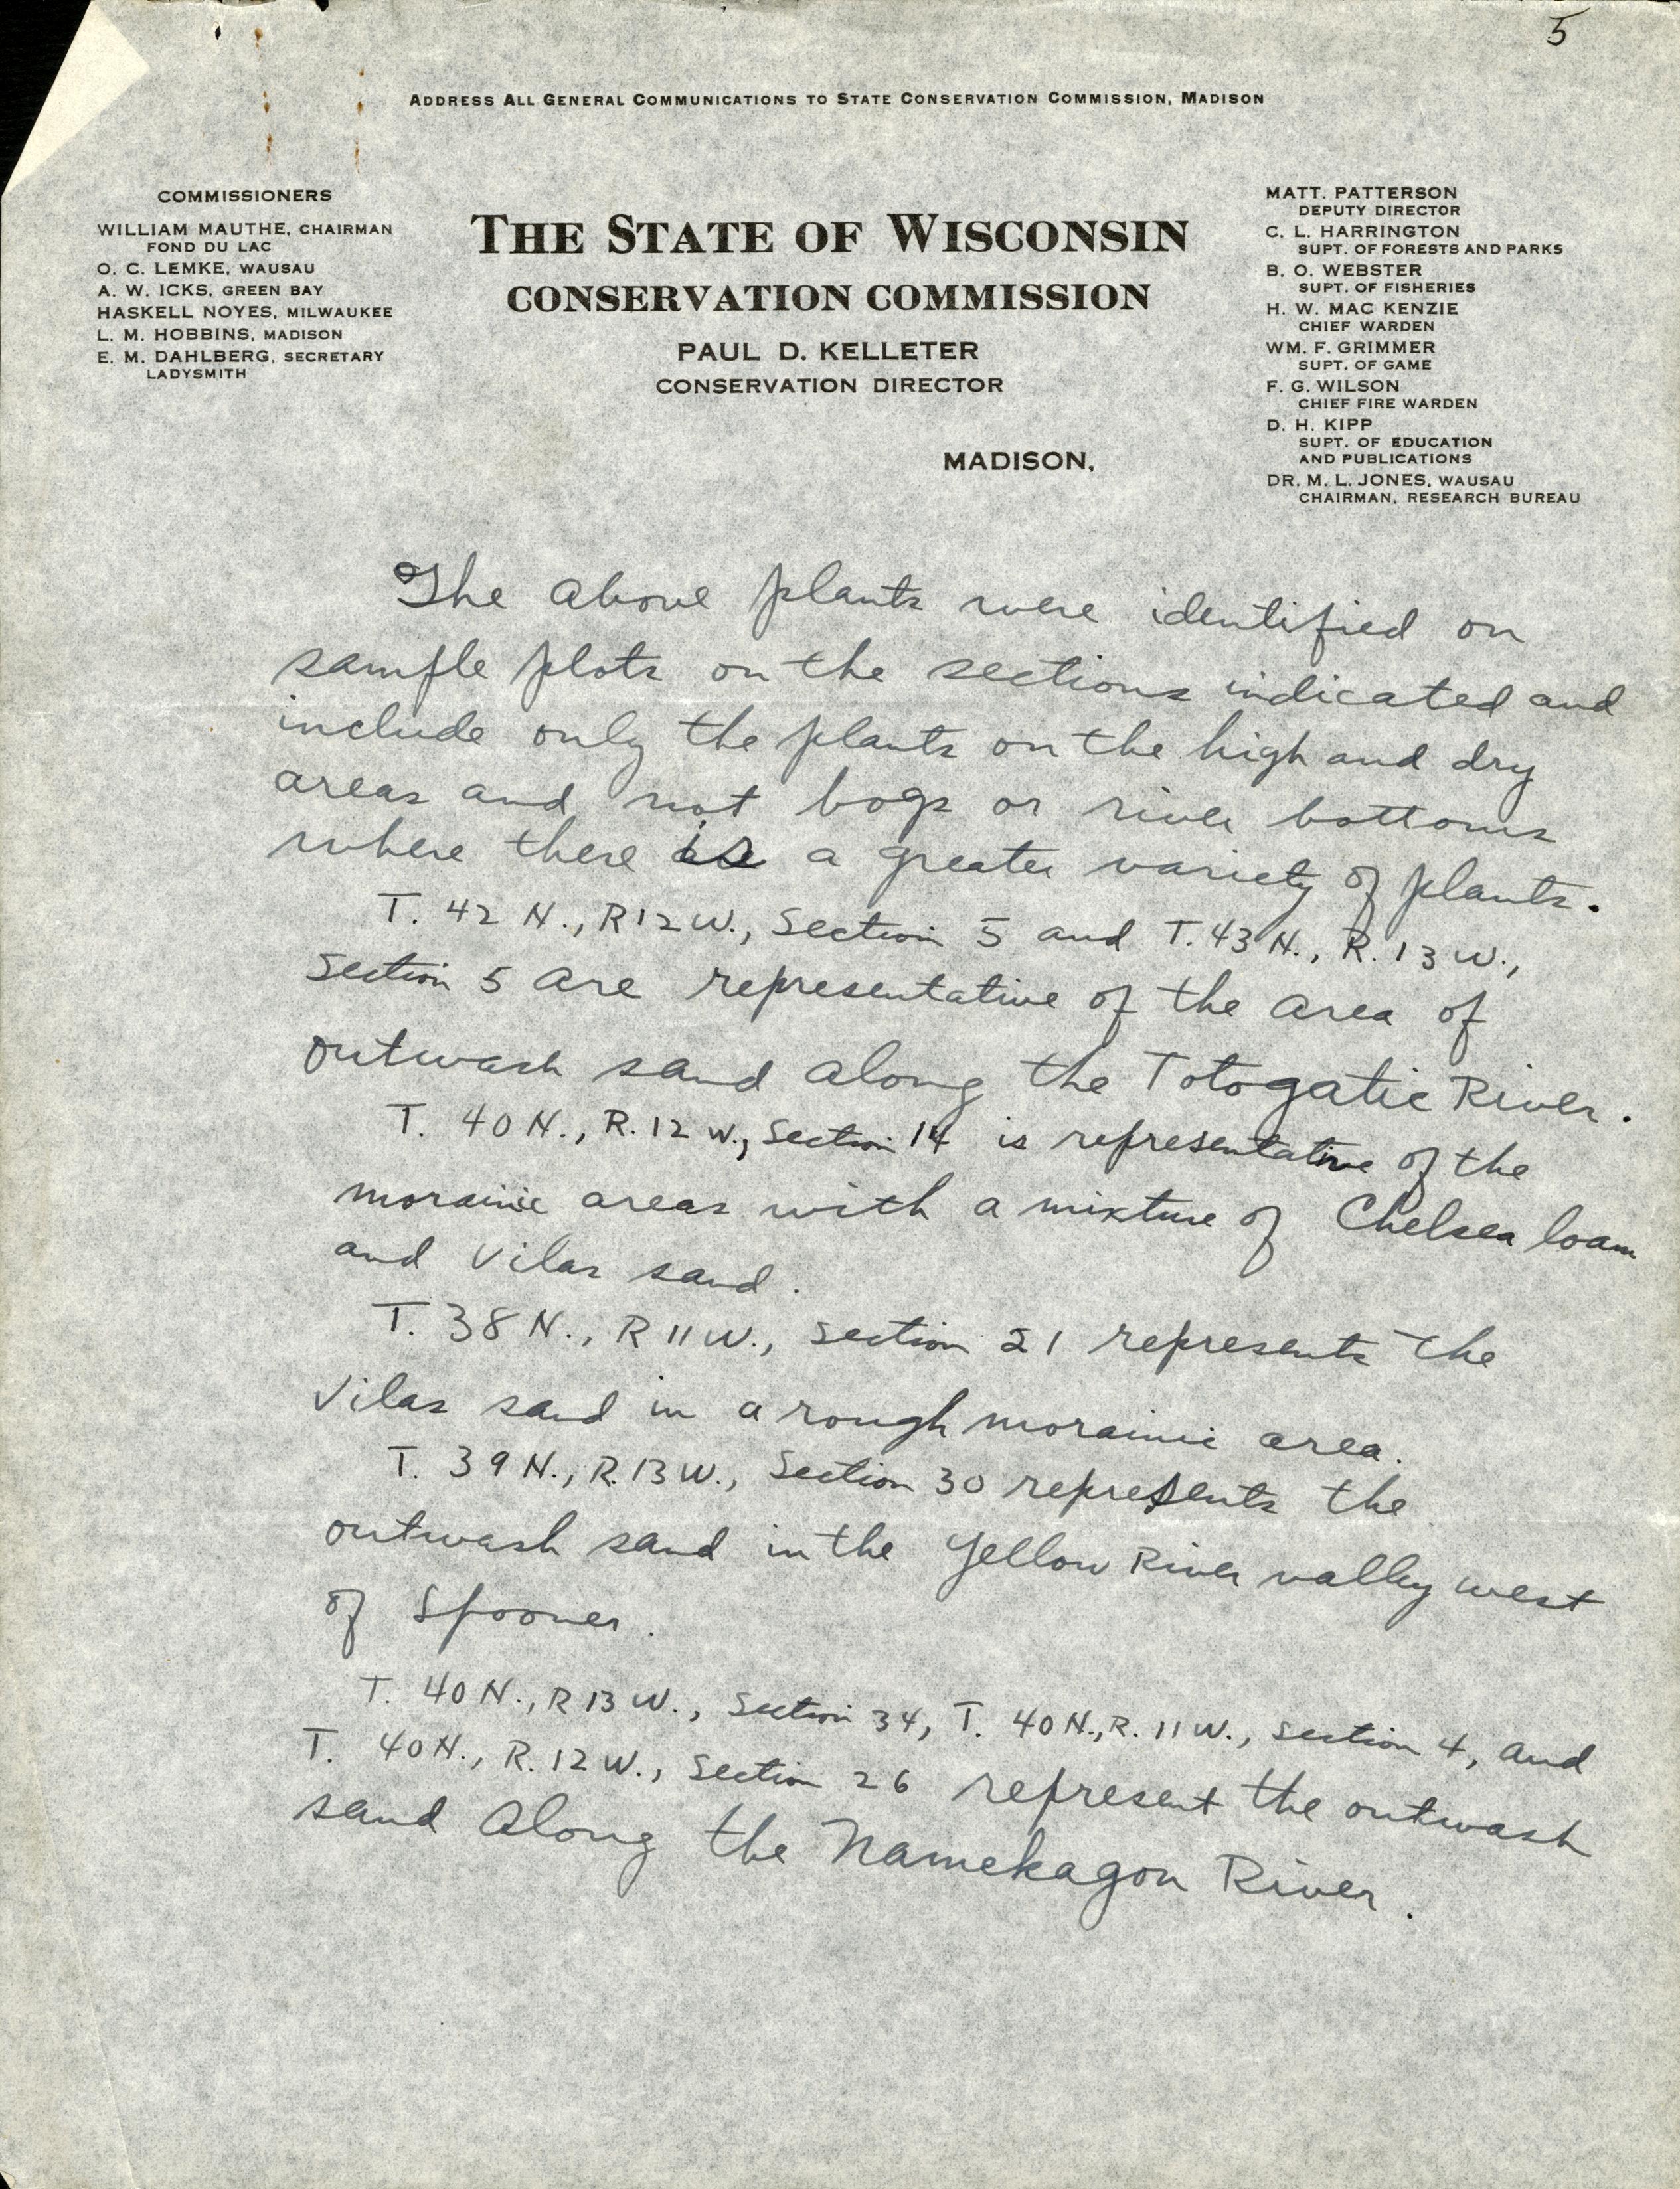 5
ADDRESS ALL GENERAL COMMUNICATIONS TO STATE CONSERVATION COMMISSION, MADISON
COMMISSIONERS
WILLIAM MAUTHE, CHAIRMAN
FOND DU LAC
O. C. LEMKE, WAUSAU
A. W. ICKS, GREEN BAY
HASKELL NOYES, MILWAUKEE
L. M. HOBBINS, MADISON
E. M. DAHLBERG, SECRETARY
LADYSMITH
THE STATE OF WISCONSIN
CONSERVATION COMMISSION
PAUL D. KELLETER
CONSERVATION DIRECTOR
MADISON,
MATT. PATTERSON
DEPUTY DIRECTOR
C. L. HARRINGTON
SUPT. OF FORESTS AND PARKS
B. O. WEBSTER
SUPT. OF FISHERIES
H. W. MAC KENZIE
CHIEF WARDEN
WM. F. GRIMMER
SUPT. OF GAME
F. G. WILSON
CHIEF FIRE WARDEN
D. H. KIPP
SUPT. OF EDUCATION
AND PUBLICATIONS
DR. M. L. JONES, WAUSAU
CHAIRMAN, RESEARCH BUREAU
The above plants were identified on
sample plots on the sections indicated and
include only the plants on the high and dry
areas and not bogs or river bottoms
where there is a greater variety of plants.
T. 42 N., R 12 W., Section 5 and T. 43 N., R. 13 W.,
Section 5 are representative of the area of
outwash sand along the Totogatic River.
T. 40 N., R. 12 W., Section 14 is representative of the
morainic areas with a mixture of Chelsea loam
and Vilas sand.
T. 38 N., R 11 W., Section 21 represents the
Vilas sand in a rough morainic area.
T. 39 N., R. 13 W., Section 30 represents the
outwash sand in the Yellow River valley west
of Spooner.
T. 40 N., R 13 W., Section 34, T. 40 N., R. 11 W., Section 4, and
T. 40 N., R. 12 W., Section 26 represent the outwash
sand along the Namekagon River.